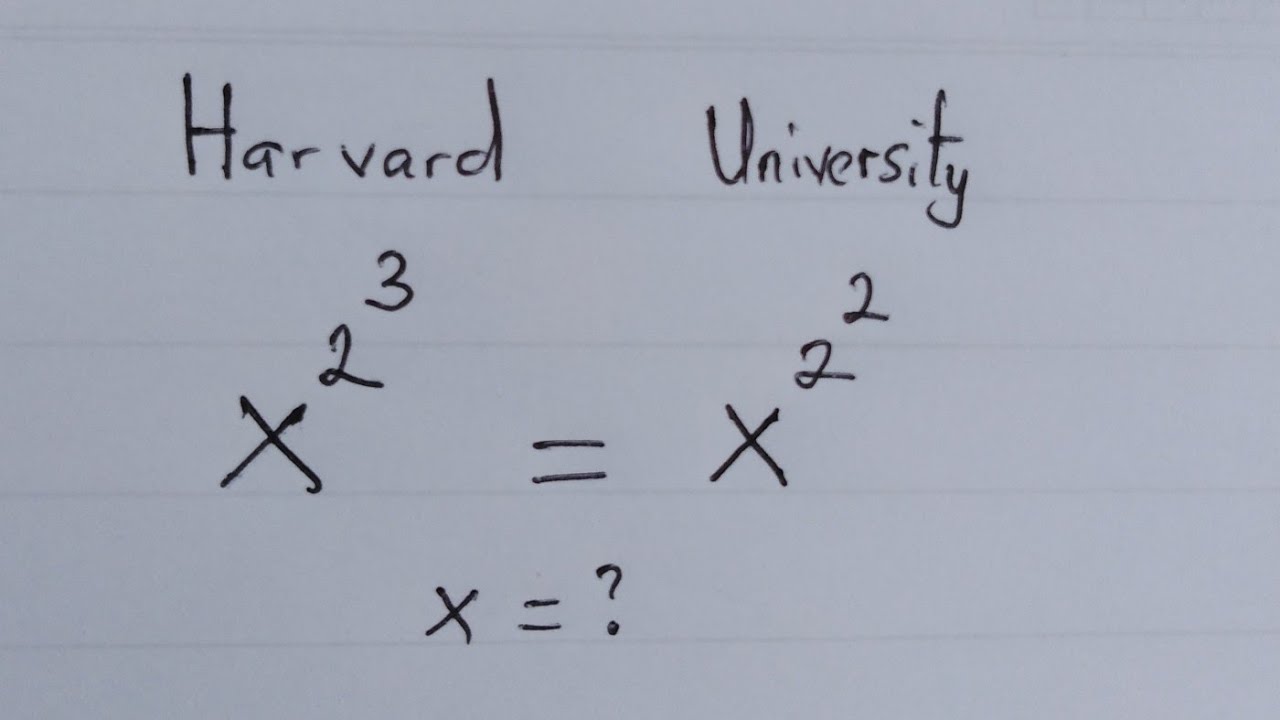 Harvard University
x^{2^{3}} = x^{2^{2}}
x = ?